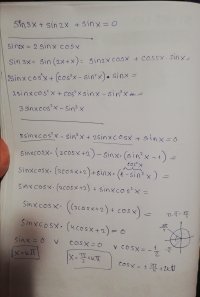 sin3x + sin2x + sinx = 0
sin2x = 2 sinx cosx
sin3x = sin(2x+x) = sin2x cosx + cos2x sinx =
2sinx cos²x + (cos²x - sin²x) · sinx =
2sinx cos²x + cos²x sinx - sin³x =
3 sinx cos²x - sin³x
3sinx cos²x - sin³x + 2sinx cosx + sinx = 0
sinx cosx · (3cosx+2) - sinx · (sin²x - 1) =
cos²x
sinx cosx · (3cosx+2) + sinx · (1 - sin²x) =
sinx cosx · (3cosx+2) + sinx cos²x =
sinx cosx · ((3cosx+2) + cosx) =
sinx cosx · (4cosx+2) = 0
sinx = 0 v cosx = 0 v cosx = -1/2
x = kπ
x = π/2 + kπ